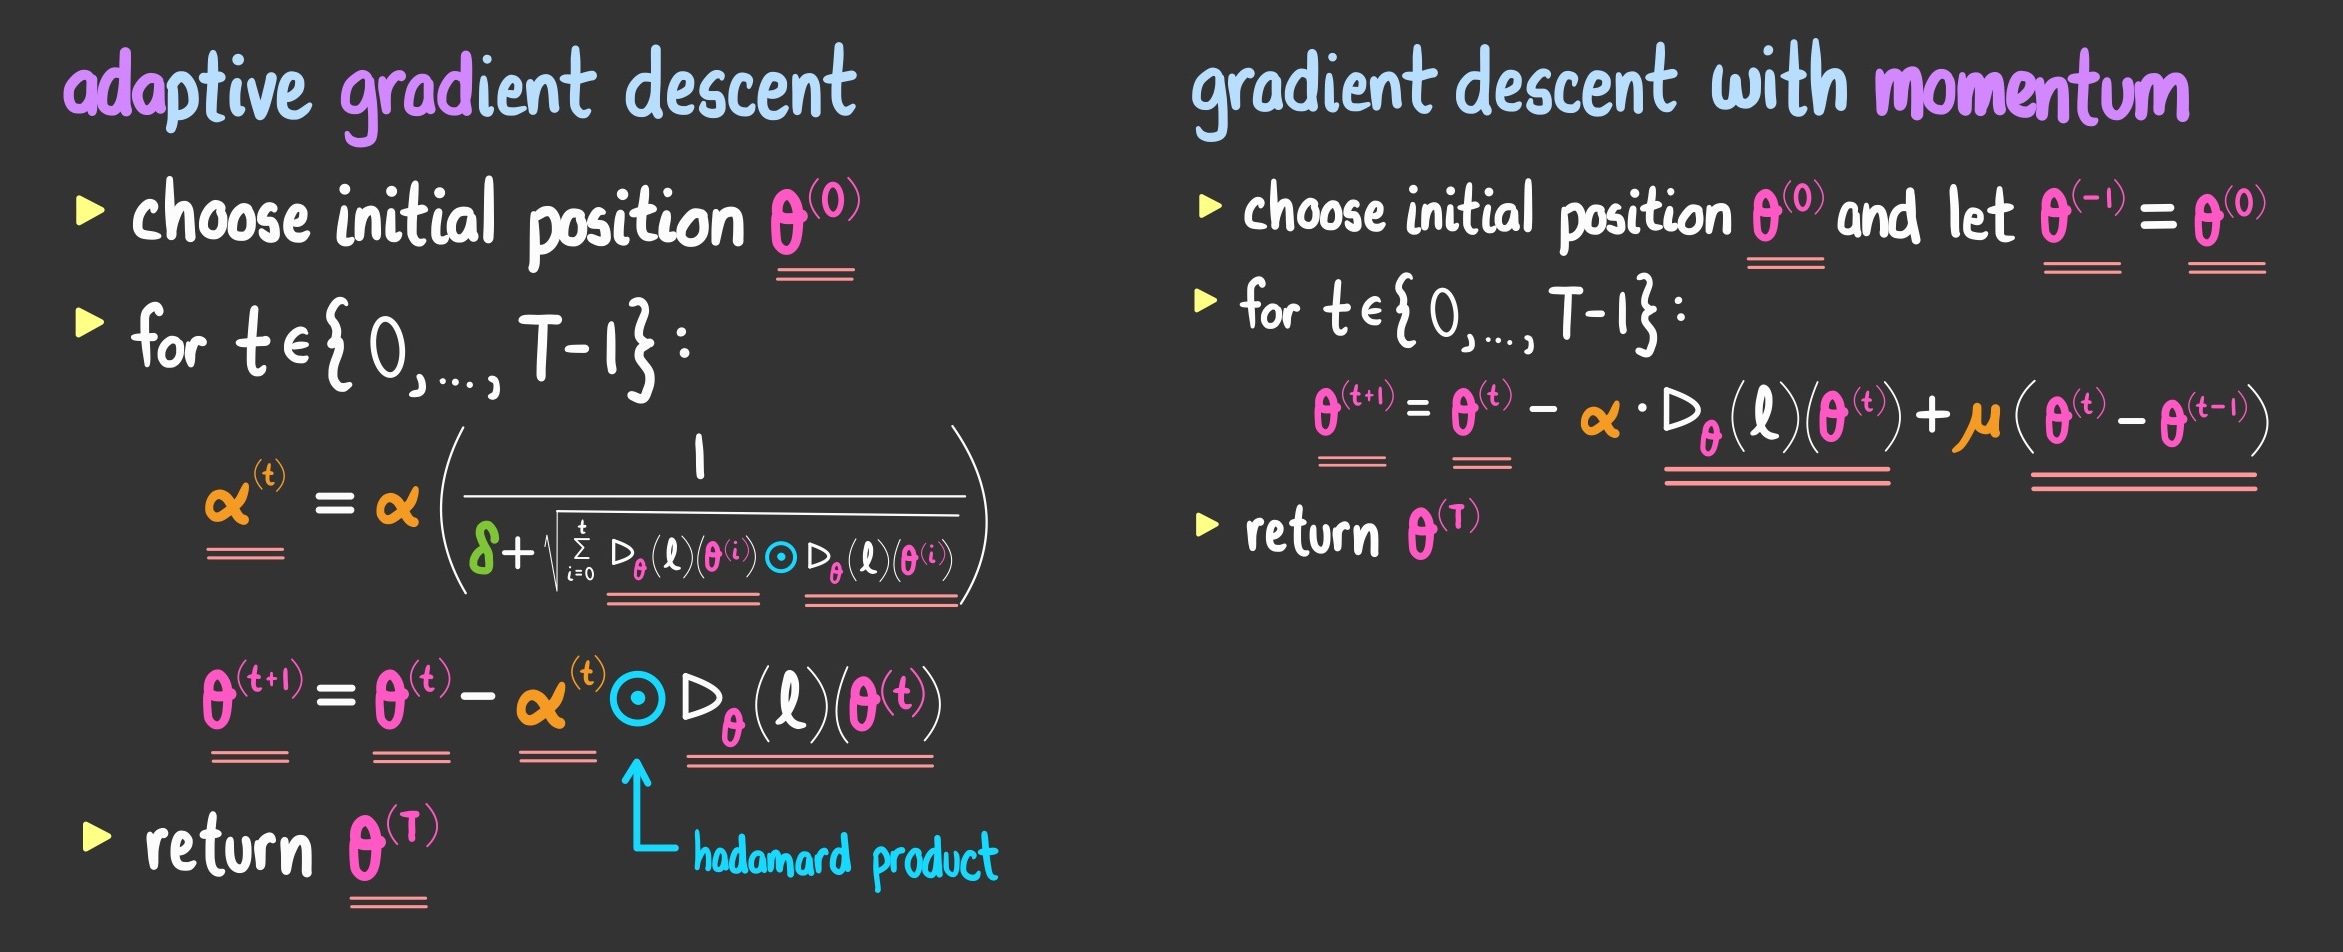 adaptive gradient descent
▶ choose initial position θ^(0)
▶ for t ∈ {0, ..., T-1}:
α^(t) = α ( 1 / ( δ + √( Σ_{i=0}^{t} ▷_θ(ℓ)(θ^(i)) ⊙ ▷_θ(ℓ)(θ^(i)) ) ) )
θ^(t+1) = θ^(t) - α^(t) ⊙ ▷_θ(ℓ)(θ^(t))
hadamard product
▶ return θ^(T)
gradient descent with momentum
▶ choose initial position θ^(0) and let θ^(-1) = θ^(0)
▶ for t ∈ {0, ..., T-1}:
θ^(t+1) = θ^(t) - α · ▷_θ(ℓ)(θ^(t)) + μ(θ^(t) - θ^(t-1))
▶ return θ^(T)